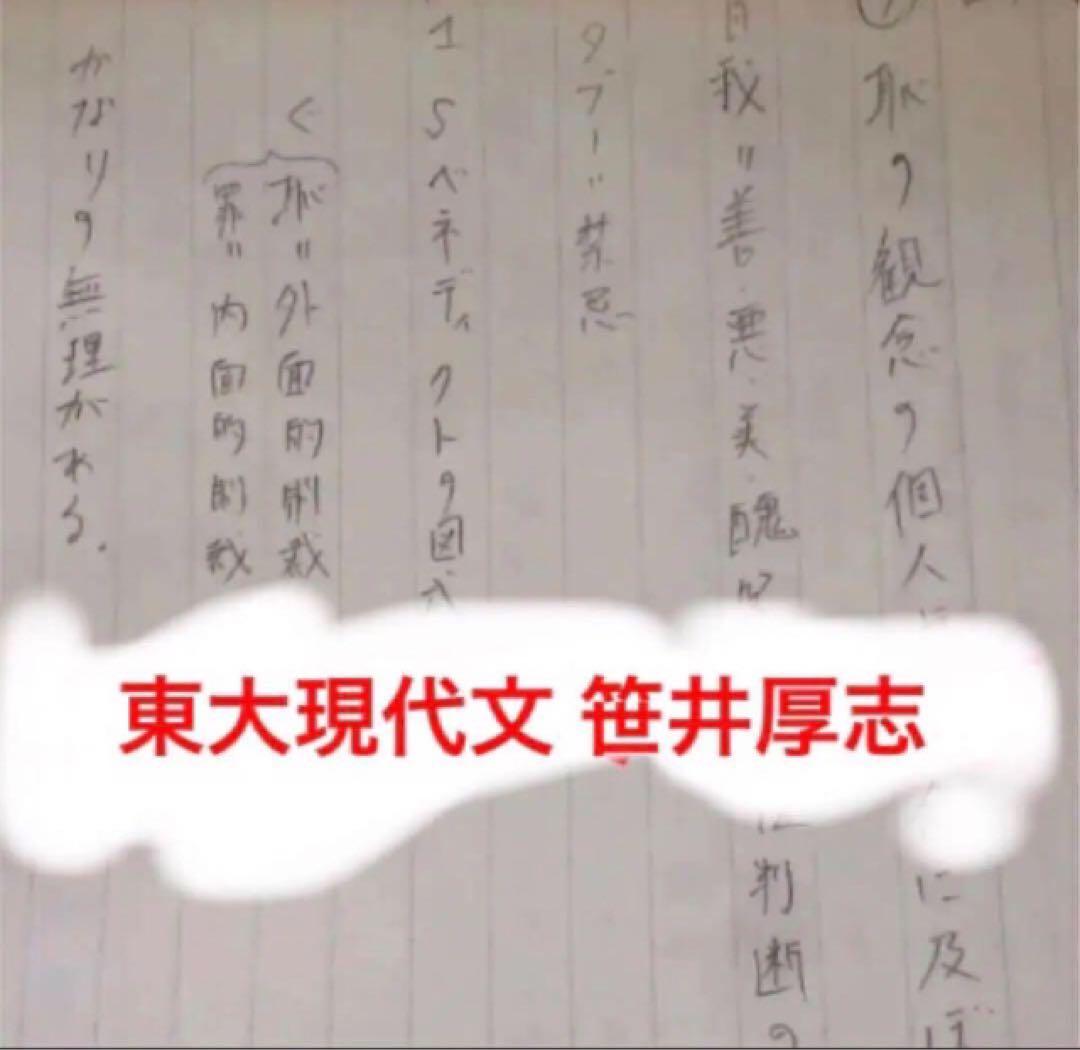 恥の観念の個人に
に及ぼ
自我〃善・悪・美・醜
判断の
タブー〃禁忌
1 5 ベネディクトの図式
く
恥〃外面的制裁
罪〃内面的制裁
かなりの無理がある.
東大現代文 笹井厚志